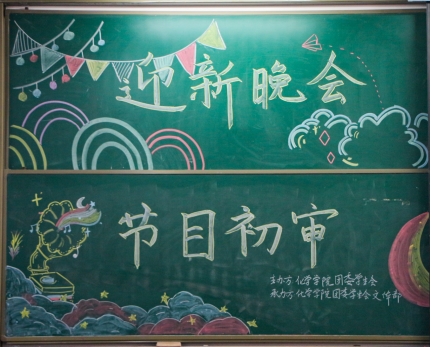 迎新晚会
节目初审
主办方 化学学院团委学生会
承办方 化学学院团委学生会文体部